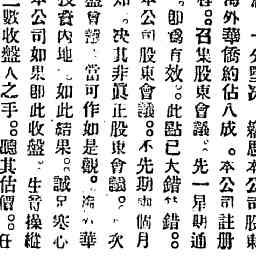 股東
海外華僑約佔八成。本公司註冊
。召集股東會議。先一星期通
。即爲有效。此點已大錯特錯。
本公司股東會議。不先期兩個月
知。決其非眞正股東會議。次
盤會議。當可作如是觀。海外華
投資內地。如此結果。誠足寒心
本公司如果即此收盤。生操縱
數收盤人之手。聽其估價。任